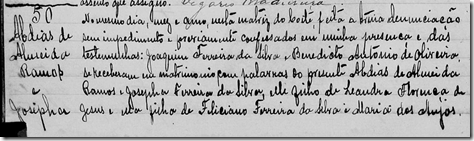 assento que assigno. Vigario
50
Abdias de Almeida Ramos e Josepha
No mesmo dia, mez e anno, nesta matriz do Codó feita a trina denunciação
sem impedimento e previamente confessados em minha presença e das
testemunhas: Joaquim Ferreira da Silva e Benedicto Antonio de Oliveira,
se receberam em matrimonio com palavras do presente Abdias de Almeida
Ramos e Josepha Ferreira da Silva, elle filho de Leandra Florença de
Jesus e ella filha de Feliciano Ferreira da Silva e Maria dos Anjos.